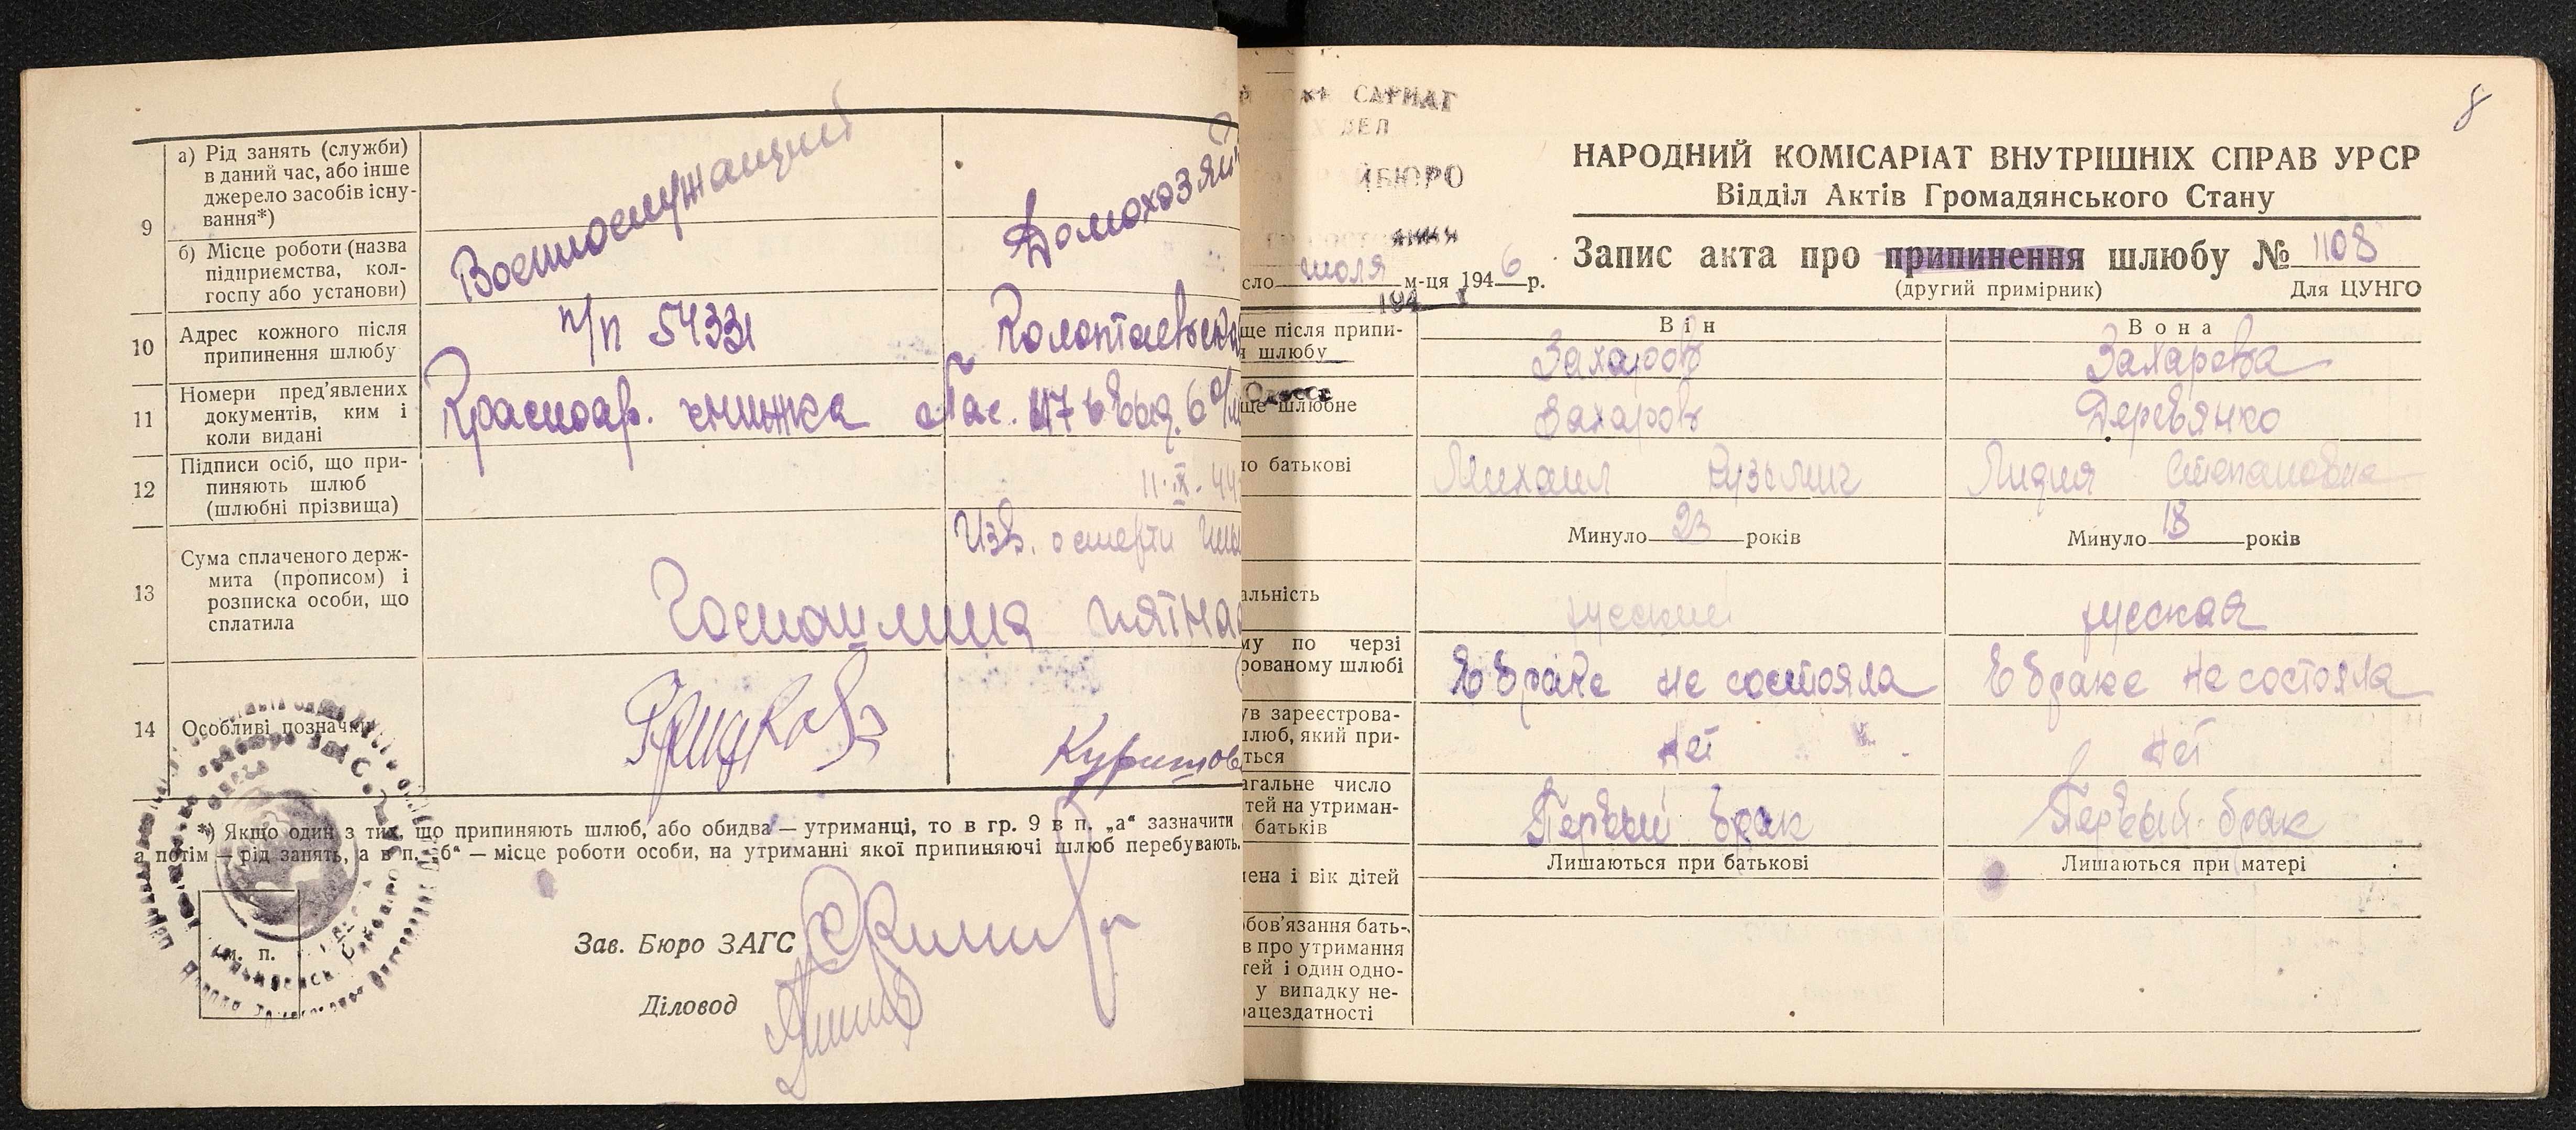 9
а) Рід занять (служби)
в даний час, або інше
джерело засобів існу-
вання*)
б) Місце роботи (назва
підприємства, кол-
госпу або установи)
Военнослужащий
Домохозяй
10
Адрес кожного після
припинення шлюбу
п/п 54331
11
Номери пред'явлених
документів, ким і
коли видані
Красноар. книжка
Пас.
выд. 6 о/м
12
Підписи осіб, що при-
пиняють шлюб
(шлюбні прізвища)
11.IX.44
Изв. о смерти
13
Сума сплаченого держ-
мита (прописом) і
розписка особи, що
сплатила
Госпошлина пятнад
14
Особливі позначки
*) Якщо один з тих, що припиняють шлюб, або обидва — утриманці, то в гр. 9 в п. „а“ зазначити
а потім — рід занять, а в п. „б“ — місце роботи особи, на утриманні якої припиняючі шлюб перебувають.
Зав. Бюро ЗАГС
Діловод
М. П.
8
НАРОДНИЙ КОМІСАРІАТ ВНУТРІШНІХ СПРАВ УРСР
Відділ Актів Громадянського Стану
Запис акта про припинення шлюбу № 1108
(другий примірник) Для ЦУНГО
ДЕЛ
сло июля м-ця 1946 р.
194
Одесса
Він Вона
ще після припи-
я шлюбу
Захаров Захарова
ще шлюбне
Захаров Деревянко
по батькові
Михаил Кузьмич Лидия Степановна
Минуло 23 років Минуло 18 років
альність
русский русская
му по черзі
рованому шлюбі
В браке не состояла В браке не состояла
ув зареєстрова-
шлюб, який при-
ться
нет нет
агальне число
тей на утриман-
батьків
Первый брак Первый брак
Лишаються при батькові Лишаються при матері
мена і вік дітей
обов'язання бать-
в про утримання
тей і один одно-
у випадку не-
рацездатності